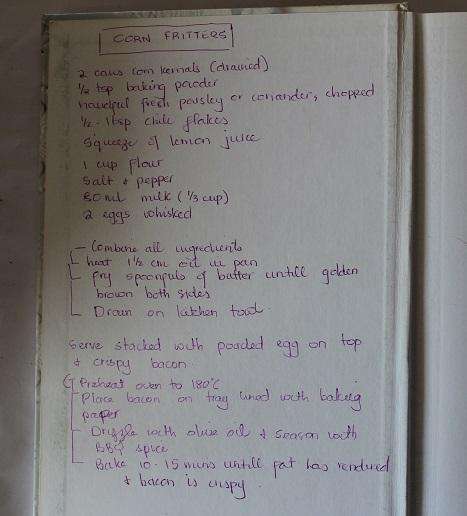 CORN FRITTERS
2 cans corn kernals (drained)
1/2 tsp baking powder
handful fresh parsley or coriander, chopped
1/2 - 1tsp chili flakes
Squeeze of lemon juice
1 cup flour
Salt & pepper
80ml milk (1/3 cup)
2 eggs whisked
- Combine all ingredients
- heat 1 1/2 cm oil in pan
- fry spoonfuls of batter untill golden
brown both sides
- Drain on kitchen towl.
Serve stacked with poached egg on top
& crispy bacon
Preheat oven to 180°C
- Place bacon on tray lined with baking
paper
- Drizzle with olive oil & season with
BBQ spice
- Bake 10-15 mins untill fat has rendured
& bacon is crispy.